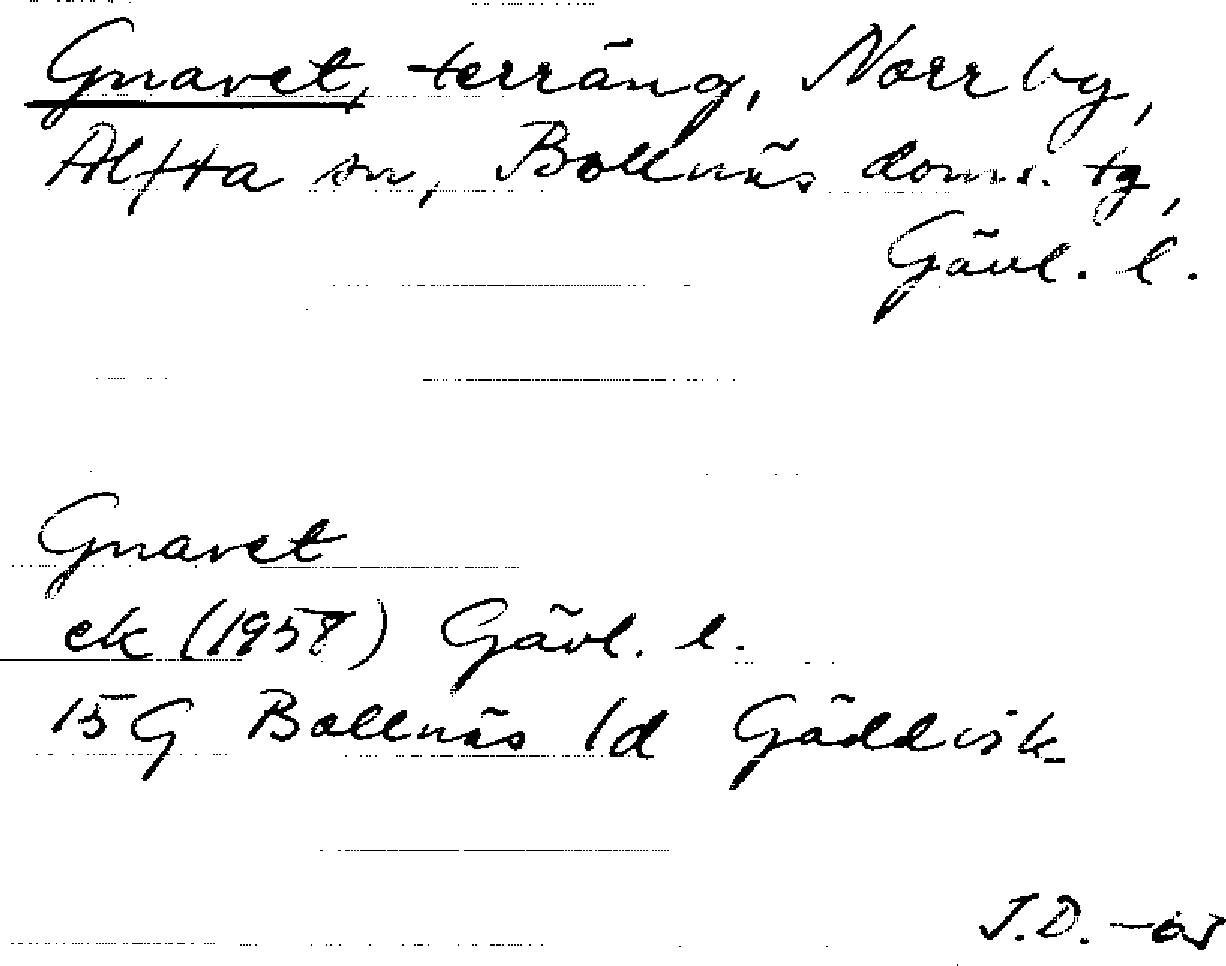 Gnavet, terräng, Norrby,
Alfta sn, Bollnäs doms. tg,
Gävl. l.
Gnavet
ek (1957) Gävl. l.
15G Bollnäs 1d Gäddvik
J.D.